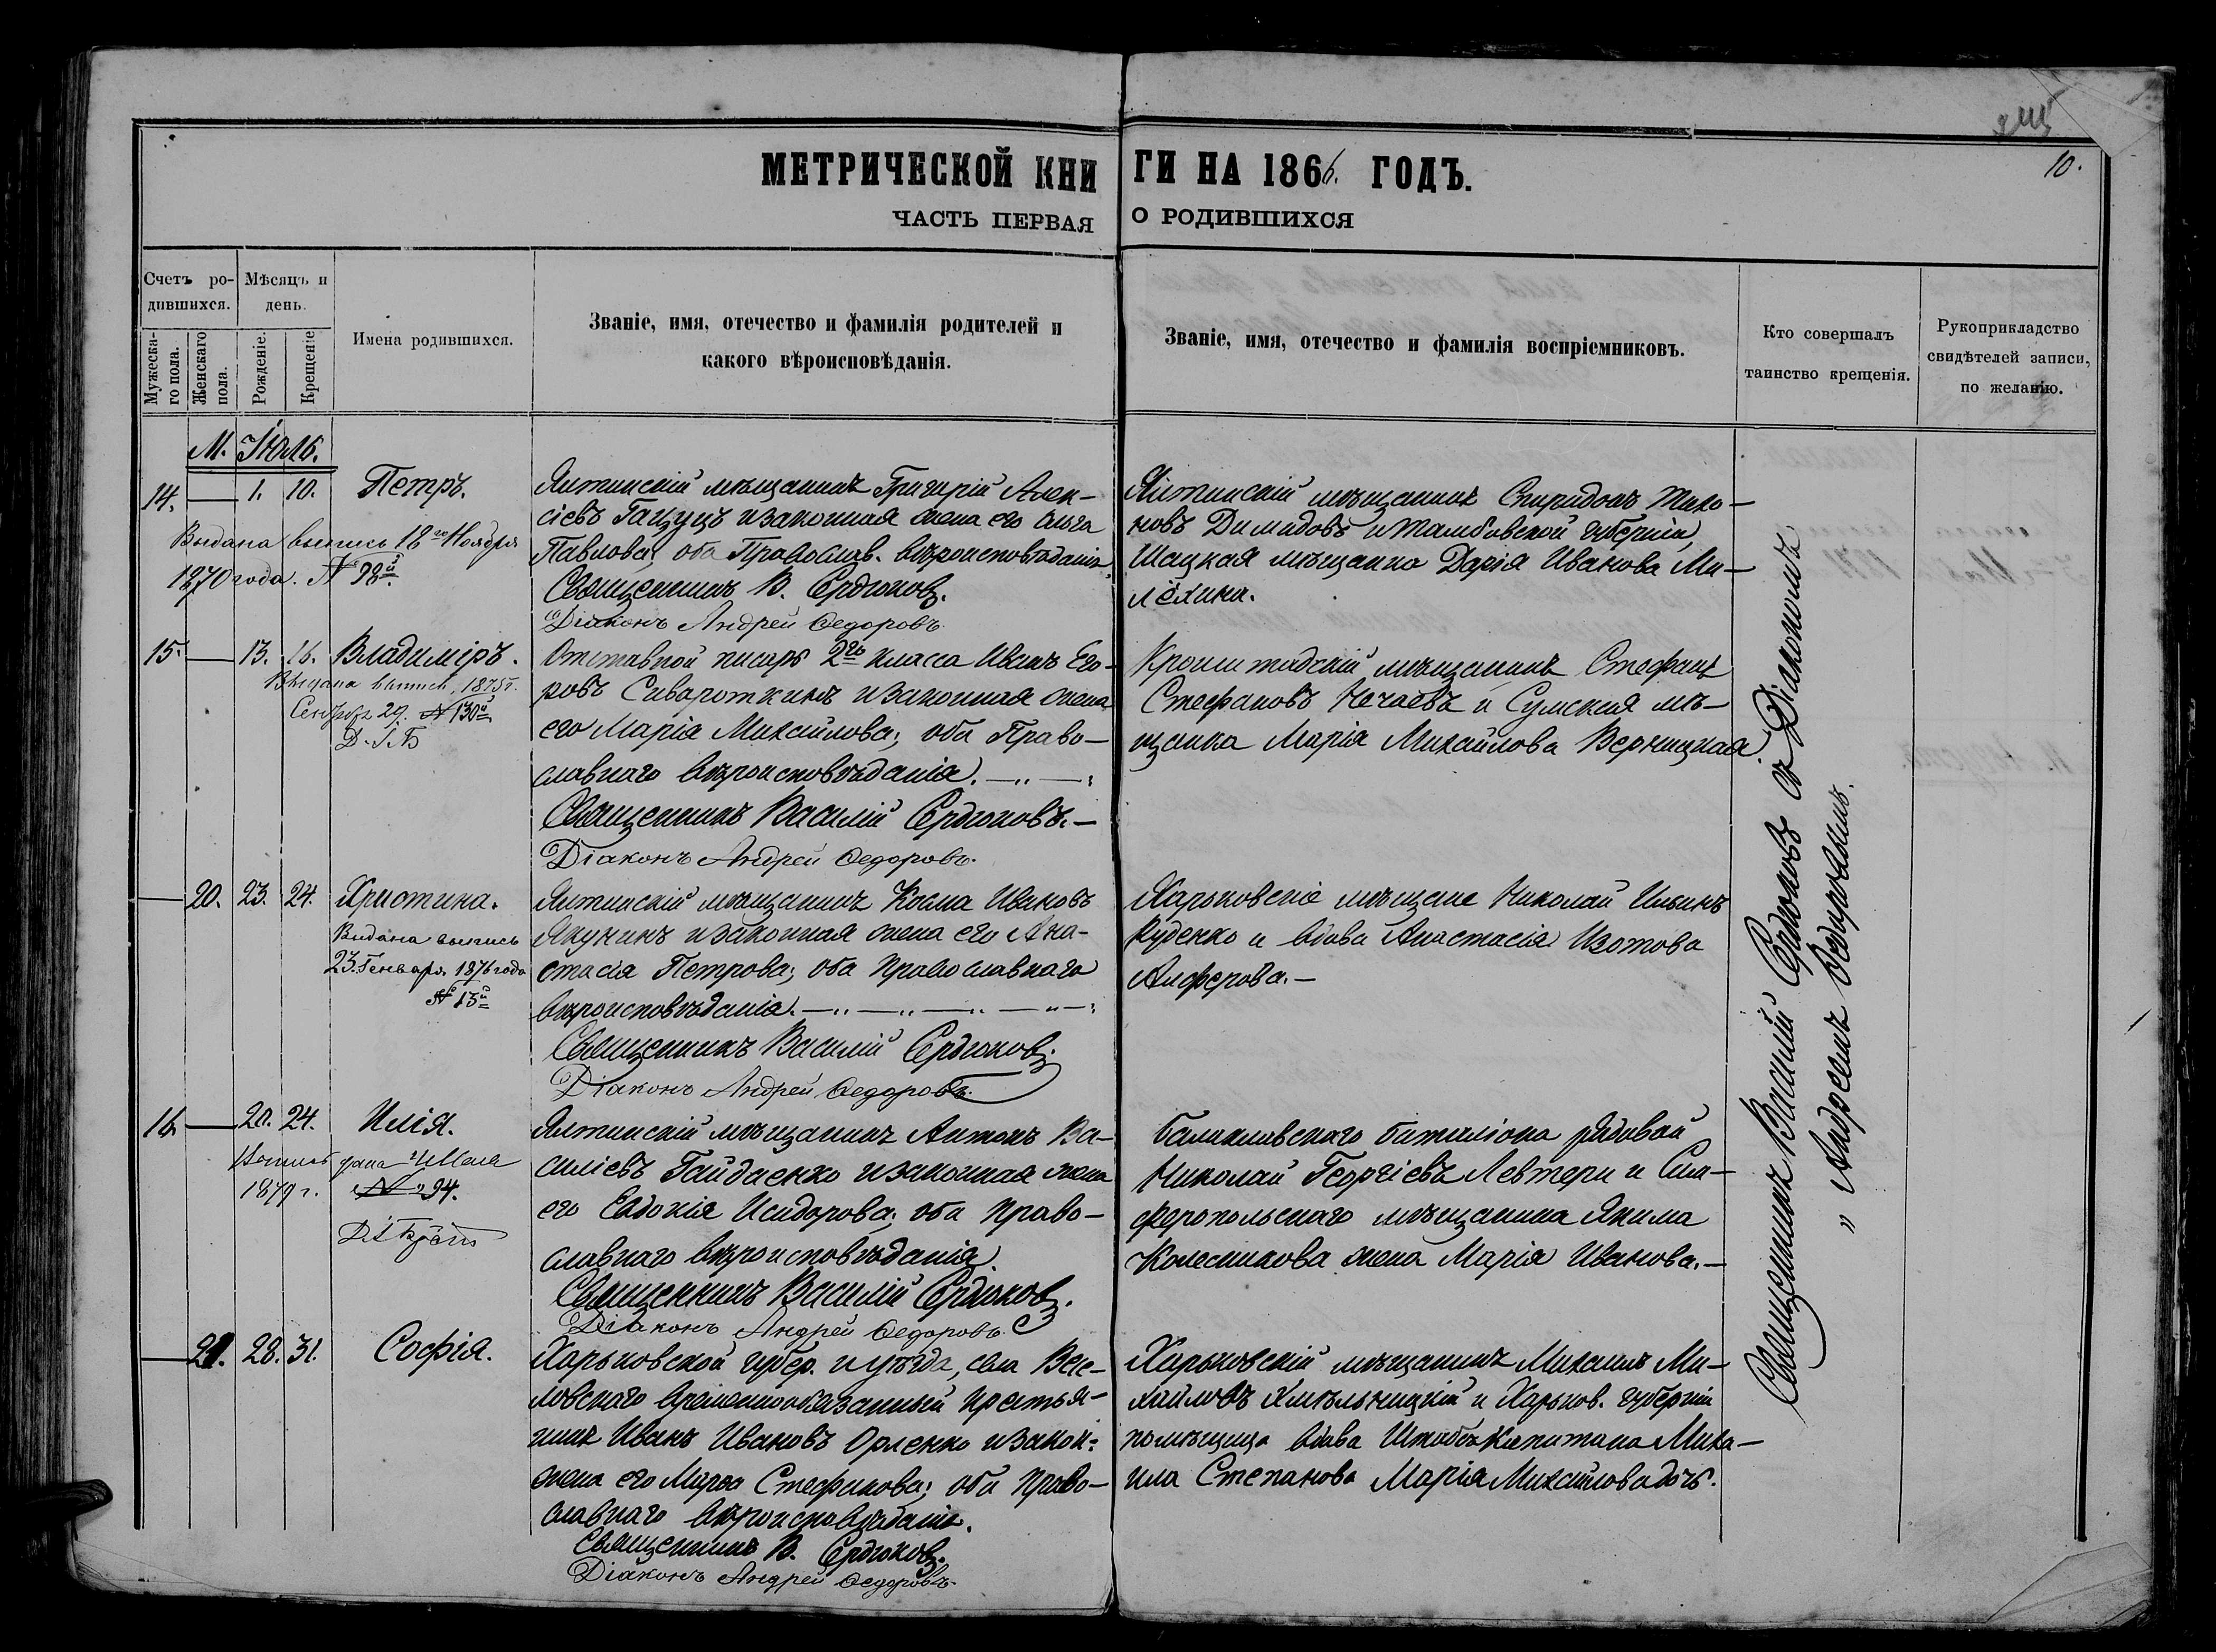 МЕТРИЧЕСКОЙ КНИ ГИ НА 1866. ГОДЪ.
10.
ЧАСТЬ ПЕРВАЯ О РОДИВШИХСЯ
Счетъ ро-
дившихся.
Мужеска-
го пола.
Женскаго
пола.
Мѣсяцъ и
день.
Рожденіе.
Крещеніе
Имена родившихся.
Званіе, имя, отечество и фамилія родителей и
какого вѣроисповѣданія.
Званіе, имя, отечество и фамилія воспріемниковъ.
Кто совершалъ
таинство крещенія.
Рукоприкладство
свидѣтелей записи,
по желанію.
М. Іюль.
14. — 1. 10. Петръ.
Выдана выпись 18го Ноября
1870 года. № 98й.
Ялтинскій мѣщанинъ Григорій Алек-
сіевъ Гацуцъ и законная жена его Ольга
Павлова; оба Православ. вѣроисповѣданія.
Священникъ В. Сердюковъ.
Діаконъ Андрей Ѳедоровъ.
Ялтинскій мѣщанинъ Спиридонъ Тихо-
новъ Димидовъ и Тамбовской губерніи,
Шацкая мѣщанка Дарія Иванова Ми-
лёхина.
15. — 13. 16. Владиміръ.
Выдана выпись, 1875 г.
Сентбр 29. № 130й
Отставной писарь 2го класса Иванъ Его-
ровъ Сивароткинъ и законная жена
его Марія Михайлова; оба Право-
славнаго вѣроисповѣданія.
Священникъ Василій Сердюковъ.—
Діаконъ Андрей Ѳедоровъ.
Кронштадскій мѣщанинъ Стефанъ
Стефановъ Нечаевъ и Сумская мѣ-
щанка Марія Михайлова Верницкая.
— 20. 23. 24. Христина.
Видана выпись
23. Генваря 1876 года
№ 13й
Ялтинскій мѣщанинъ Косма Ивановъ
Якунинъ и законная жена его Ана-
стасія Петрова; оба Православнаго
вѣроисповѣданія.
Священникъ Василій Сердюковъ.
Діаконъ Андрей Ѳедоровъ.
Харьковскіе мѣщане Николай Ильинъ
Руденко и вдова Анастасія Изотова
Алферова.—
16. — 20. 24. Илія.
Выпись дана Мая
1879 г. № 94.
Ялтинскій мѣщанинъ Антонъ Ва-
силіевъ Гайдаенко и законная жена
его Евдокія Исидорова; оба Право-
славнаго вѣроисповѣданія.
Священникъ Василій Сердюковъ.
Діаконъ Андрей Ѳедоровъ.
Балаклавскаго баталіона рядовой
Николай Георгіевъ Левтери и Сим-
феропольскаго мѣщанина Якима
Колесникова жена Марія Иванова.—
— 21. 28. 31. Софія.
Харьковской губер. и уѣзда, села Весе-
ловскаго временнообязанный крестья-
нинъ Иванъ Ивановъ Орленко и закон:
жена его Марѳа Стефанова; оба Право-
славнаго вѣроисповѣданія.
Священникъ В. Сердюковъ.
Діаконъ Андрей Ѳедоровъ.
Харьковскій мѣщанинъ Михаилъ Ми-
хайловъ Хмѣльницкій и Харьков. губерніи
помѣщица вдова Штабсъ Капитана Миха-
ила Степанова Марія Михайлова дочь.
Священникъ Василій Сердюковъ съ Діакономъ
„ Андреемъ Ѳедоровымъ.